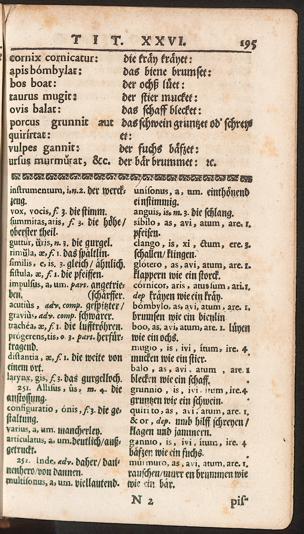 TIT. XXVI. 195
cornix cornicatur: die kräy kräyet:
apis bómbylat: das biene brumset:
bos boat: der ochß lüet:
taurus mugit: der stier mucket:
ovis balat: das schaff blecket:
porcus grunnit aut das schwein gruntzet od' schreyet:
quirîtat:
vulpes gannit: der fuchs bäfzet:
ursus murmŭrat, &c. der bär brummet: ꝛc.
instrumentum, i, n. 2. der werckzeug.
vox, vocis, f. 3. die stimm.
summitas, atis, f. 3. die höhe/
oberster theil.
guttur, ŭris, n. 3. die gurgel.
rimŭla, æ, f. 1. das spältlin.
similis, e. is. 3. gleich/ ähnlich.
fistula, æ, f. 1. die pfeiffen.
impulsus, a, um. part. angetrieben,
acutiùs, adv. comp. gespitzter/ (schärffer.
graviùs, adv. comp. schwärer.
trachéa, æ, f. 1. die lufftröhren.
progerens, tis, o 3. part. herfürtragend.
distantia, æ, f. 1. die weite von
einem ort.
larynx, gis, f. 3. das gurgelloch.
251. Allisus, ûs, m. 4. die
anstossung.
configuratio, ónis, f. 3. die gestaltung.
varius, a, um. mancherley.
articulatus, a, um. deutlich/ außgetruckt.
252. Inde, adv. daher/ dannenhero/ von dannen.
multisonus, a, um. viellautend.
unisonus, a, um. einthönend
einstimmig.
anguis, is, m. 3. die schlang.
sibilo, as, avi, atum, are. 1.
pfeisen.
clango, is, xi, ctum, ere. 3.
schallen/ klingen.
glotero, as, avi, atum, are. 1.
klappern wie ein storck.
córnicor, aris, atus sum, ari. 1.
dep kräyen wie ein kräy.
bómbylo, as, avi, atum, are. 1.
brumsen wie ein bienlin
boo, as, avi, atum, are. 1. lüyen
wie ein ochs.
mugio, is, ivi, itum, ire. 4
mucken wie ein stier.
balo, as, avi, atum, are. 1
blecken wie ein schaff.
grunnio, is, ivi, itum, ire. 4
gruntzen wie ein schwein.
quirito, as, avi, atum, are. 1,
& or, dep. umb hilff schreyen/
klagen und jammern.
gannio, is, ivi, itum, ire. 4
bäfzen wie ein fuchs.
murmuro, as, avi, atum, are. 1.
rauschen/ murren brummen wie
wie ein bär.
N 2 pis-